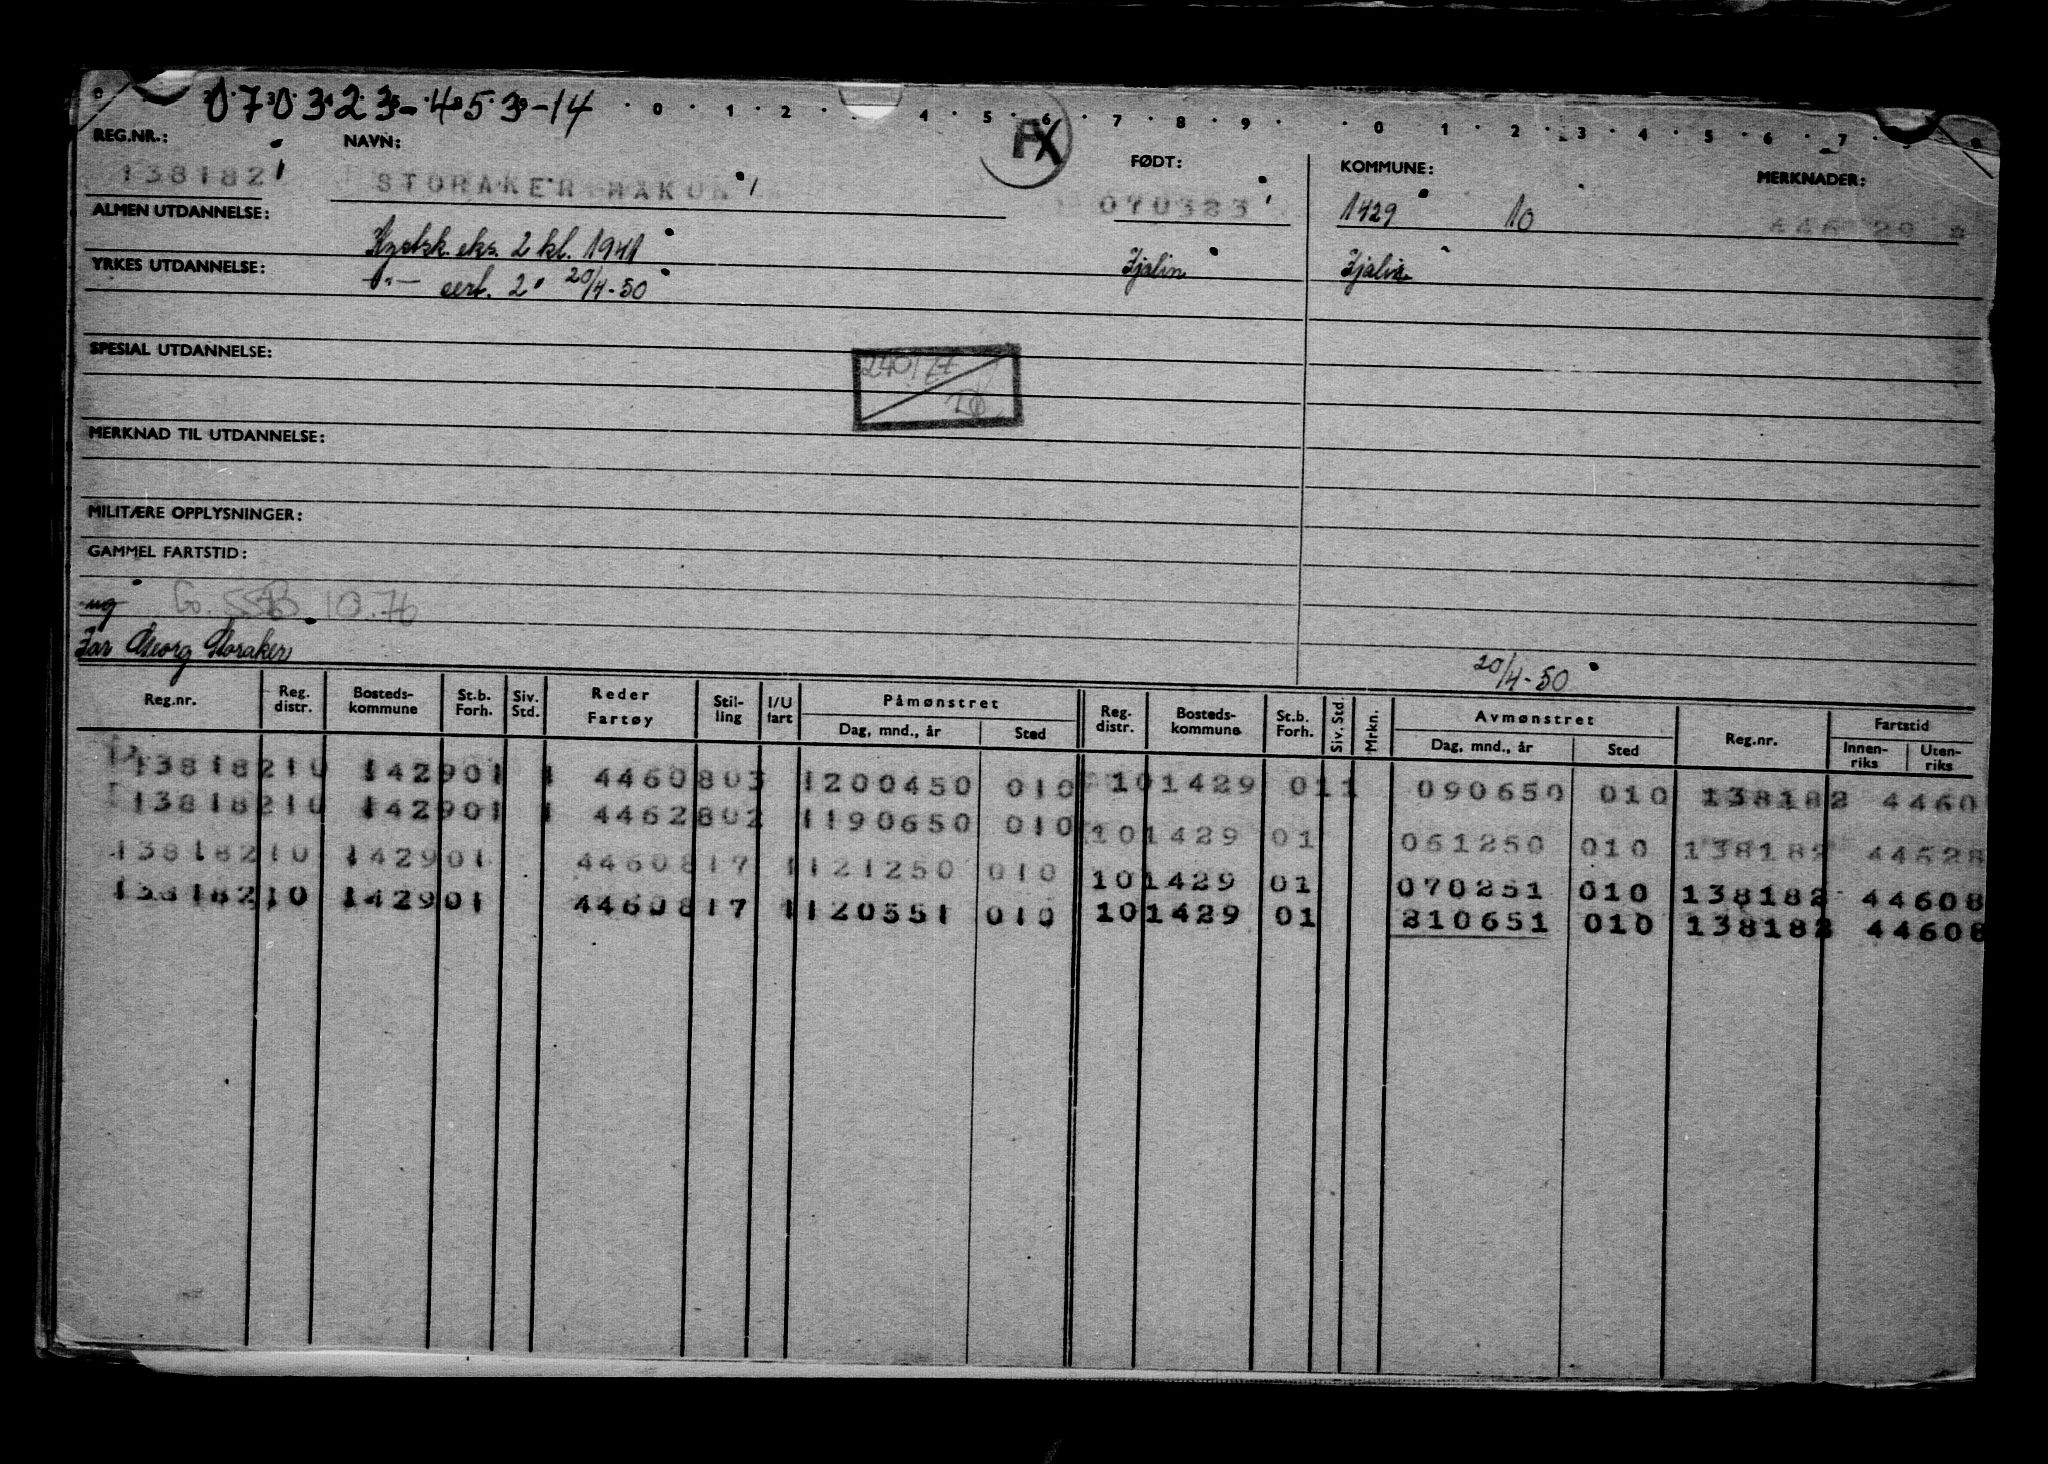 070323-453-14
0 1 2 4 5 6 7 8 9 0 1 2 3 4 5 6 7
REG.NR.: NAVN: FX FØDT: KOMMUNE: MERKNADER:
138182 STORAKER HAKON 070323 1429 10 446 29
ALMEN UTDANNELSE: Kystsk. eks. 2 kl. 1941 Fjalin Fjalir
YRKES UTDANNELSE: -"- cert. 2" 20/4-50
SPESIAL UTDANNELSE:
MERKNAD TIL UTDANNELSE:
MILITÆRE OPPLYSNINGER:
GAMMEL FARTSTID:
ug Go. SSB 10.76
Far Georg Storaker 20/4-50
Reg.nr. Reg. distr. Bosteds-kommune St.b. Forh. Siv. Std. Reder Fartøy Stil-ling I/U fart Påmønstret Dag, mnd., år Sted Reg. distr. Bosteds-kommune St.b. Forh. Siv. Std. Mrkn. Avmønstret Dag, mnd., år Sted Reg.nr. Fartstid Innen-riks Uten-riks
138182 10 1429 01 1 4460 803 1 200450 010 10 1429 01 1 090650 010 138182 4460
138182 10 1429 01 1 4462 802 1 190650 010 10 1429 01 061250 010 138182 44628
138182 10 1429 01 4460 817 1 121250 010 10 1429 01 070251 010 138182 44608
138182 10 1429 01 4460 817 1 120551 010 10 1429 01 210651 010 138182 44608